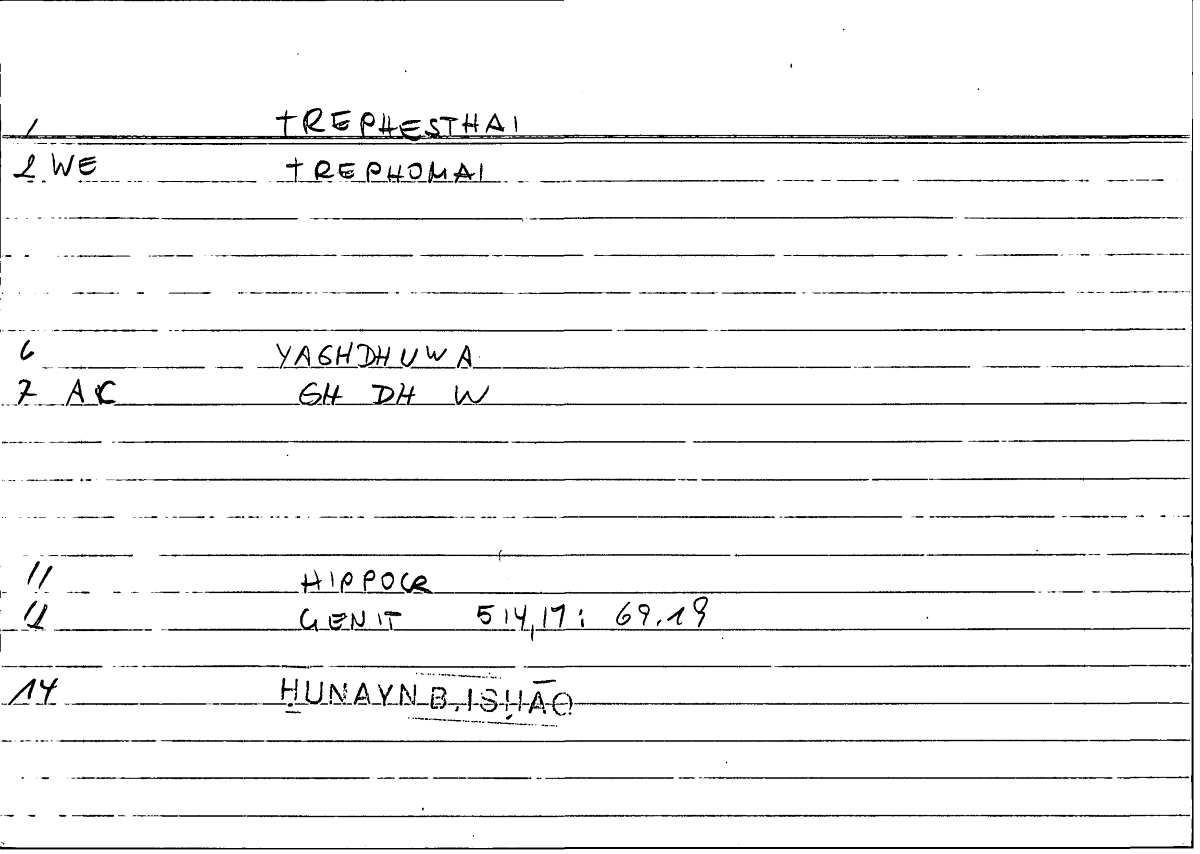 1 TREPHESTHAI
2 WE TREPHOMAI
6 YAGHDHUWA
7 AC GH DH W
11 HIPPOCR
12 GENIT 514,17: 69.19
14 ḪUNAYN B. ISḤĀQ